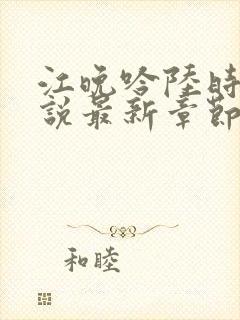 江晚吟陸時
說最新章節
和睦